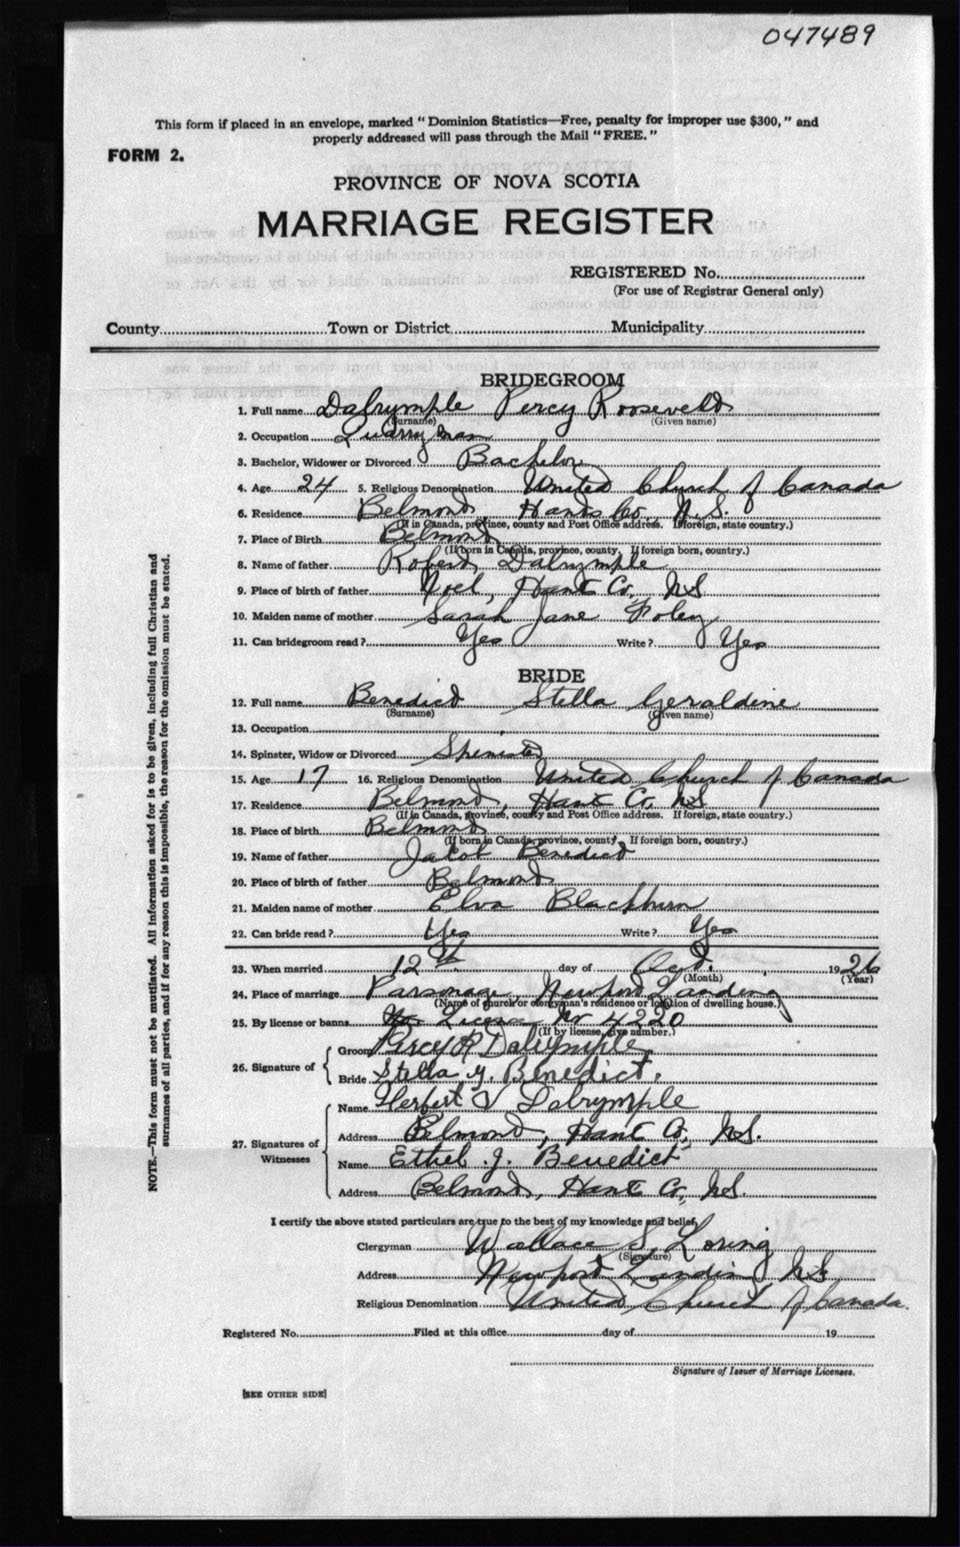 047489
This form if placed in an envelope, marked "Dominion Statistics—Free, penalty for improper use $300," and
properly addressed will pass through the Mail "FREE."
FORM 2.
PROVINCE OF NOVA SCOTIA
MARRIAGE REGISTER
REGISTERED No.
(For use of Registrar General only)
County Town or District Municipality
BRIDEGROOM
1. Full name Dalrymple Percy Roosevelt
(Surname) (Given name)
2. Occupation Quarryman
3. Bachelor, Widower or Divorced Bachelor
4. Age 24 5. Religious Denomination United Church of Canada
6. Residence Belmond Hants Co. N.S.
(If in Canada, province, county and Post Office address. If foreign, state country.)
7. Place of Birth Belmond
(If born in Canada, province, county. If foreign born, country.)
8. Name of father Robert Dalrymple
9. Place of birth of father Noel, Hant Co, NS
10. Maiden name of mother Sarah Jane Foley
11. Can bridegroom read? Yes Write? Yes
BRIDE
12. Full name Benedict Stella Geraldine
(Surname) (Given name)
13. Occupation
14. Spinster, Widow or Divorced Spinister
15. Age 17 16. Religious Denomination United Church of Canada
17. Residence Belmond, Hant Co, NS
(If in Canada, province, county and Post Office address. If foreign, state country.)
18. Place of birth Belmond
(If born in Canada, province, county. If foreign born, country.)
19. Name of father Jacob Benedict
20. Place of birth of father Belmond
21. Maiden name of mother Elva Blackburn
22. Can bride read? Yes Write? Yes
23. When married 12th day of Oct. 1926
(Month) (Year)
24. Place of marriage Parsonage Newport Landing
(Name of church or clergyman's residence or location of dwelling house.)
25. By license or banns License Nr 4220
(If by license, give number.)
26. Signature of Groom Percy R Dalrymple
Bride Stella G. Benedict.
27. Signatures of Witnesses Name Herbert V Dalrymple
Address Belmond, Hant Co, NS.
Name Ethel J. Benedict
Address Belmond, Hant Co, NS.
I certify the above stated particulars are true to the best of my knowledge and belief,
Clergyman Wallace S. Loring
(Signature)
Address Newport Landing NS
Religious Denomination United Church of Canada.
Registered No. Filed at this office day of 19
Signature of Issuer of Marriage Licenses.
[SEE OTHER SIDE]
NOTE.—This form must not be mutilated. All information asked for is to be given, including full Christian and
surnames of all parties, and if for any reason this is impossible, the reason for the omission must be stated.